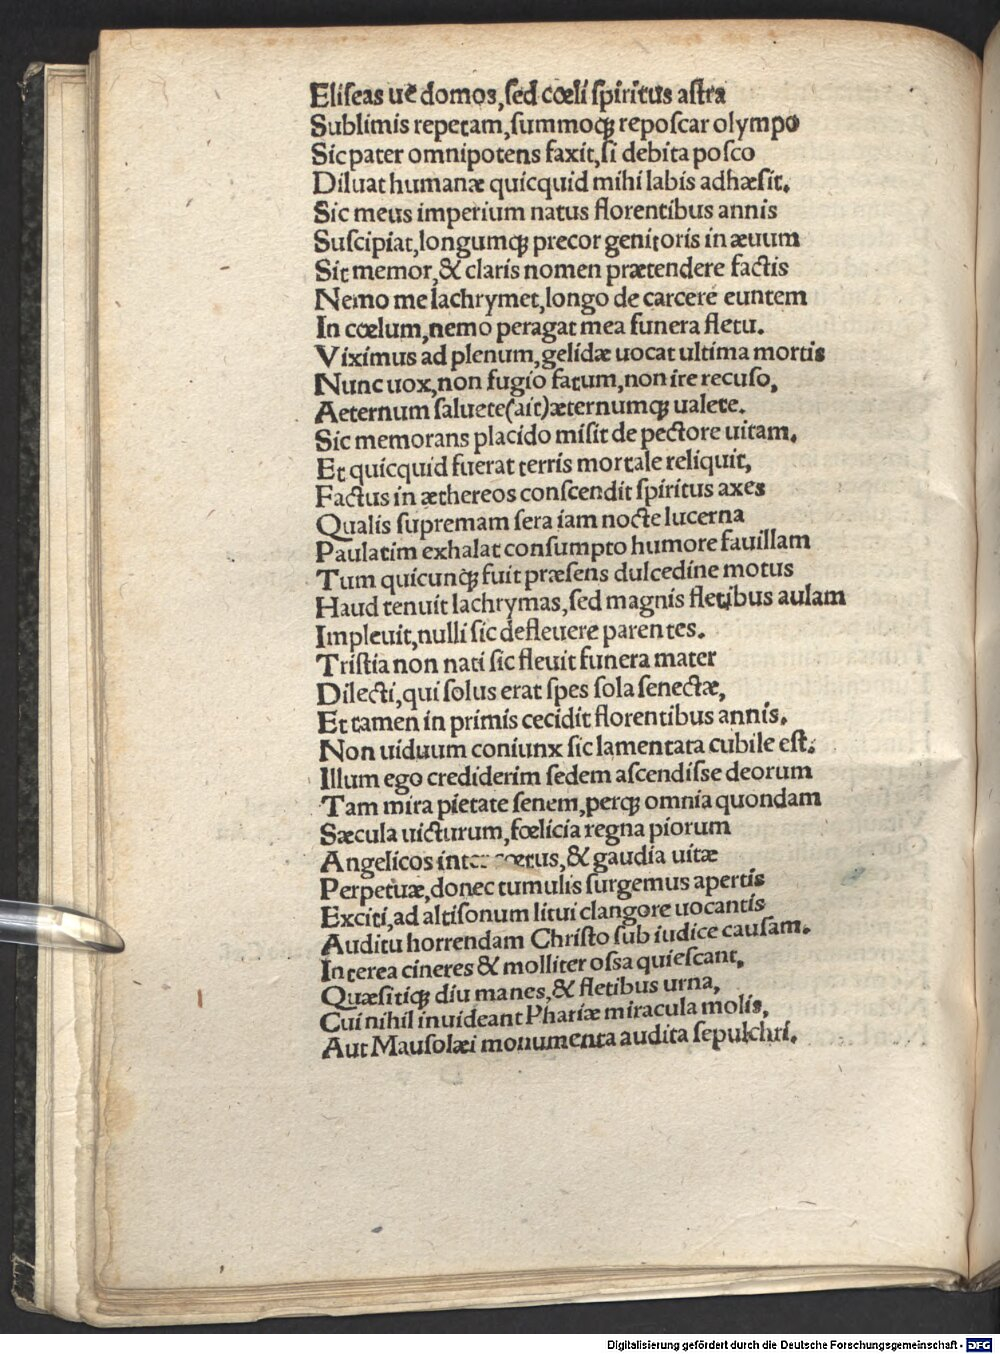 Eliſeas uĕ domoꝫ, ſed cœli ſpiritus aſtra
Sublimis repetam, ſummoqꝫ repoſcar olympo
Sic pater omnipotens faxit, ſi debita poſco
Diluat humanæ quicquid mihi labis adhæſit.
Sic meus imperium natus florentibus annis
Suſcipiat, longumqꝫ precor genitoris in æuum
Sit memor, & claris nomen prætendere factis
Nemo me lachrymet, longo de carcere euntem
In cœlum, nemo peragat mea funera fletu.
Viximus ad plenum, gelidæ uocat ultima mortis
Nunc uox, non fugio fatum, non ire recuſo,
Aeternum ſaluete (ait) æternumqꝫ ualete.
Sic memorans placido miſit de pectore uitam.
Et quicquid fuerat terris mortale reliquit,
Factus in æthereos conſcendit ſpiritus axes
Qualis ſupremam ſera iam nocte lucerna
Paulatim exhalat conſumpto humore fauillam
Tum quicunqꝫ fuit præſens dulcedine motus
Haud tenuit lachrymas, ſed magnis fletibus aulam
Impleuit, nulli ſic defleuere parentes.
Triſtia non nati ſic fleuit funera mater
Dilecti, qui ſolus erat ſpes ſola ſenectæ,
Et tamen in primis cecidit florentibus annis.
Non uiduum coniunx ſic lamentata cubile eſt.
Illum ego crediderim ſedem aſcendiſse deorum
Tam mira pietate ſenem, perqꝫ omnia quondam
Sæcula uicturum, fœlicia regna piorum
Angelicos inter cœtus, & gaudia uitæ
Perpetuæ, donec tumulis ſurgemus apertis
Exciti, ad altiſonum litui clangore uocantis
Auditu horrendam Chriſto ſub iudice cauſam.
Interea cineres & molliter oſsa quieſcant,
Quæſitiqꝫ diu manes, & fletibus urna,
Cui nihil inuideant Phariæ miracula molis,
Aut Mauſolæi monumenta audita ſepulchri.
Digitalisierung gefördert durch die Deutsche Forschungsgemeinschaft - DFG